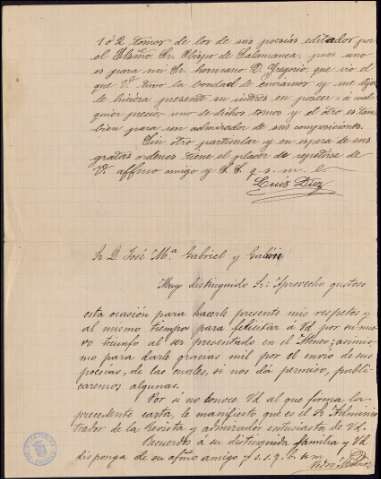 1 ó 2 tomos de los de sus poesías editados por
el Ilmo Sr. Obispo de Salamanca, pues uno
es para un Sr. hermano D. Gregorio que vio el
que Vd tuvo la bondad de enviarnos y me dijo
le hiciera presente su interés en poseer a cual
quier precio uno de dichos tomos y el otro es tam
bien para un admirador de sus composiciones.
Sin otro particular y en espera de sus
gratas ordenes tiene el placer de repetirse de
V. affmo amigo y S. S. q. s. m. b.
Luis Diez
Sr D. José M.ª Gabriel y Galán
Muy distinguido Sr: Aprovecho gustoso
esta ocasión para hacerle presente mis respetos y
al mismo tiempo para felicitar á Vd por su nue
vo triunfo al ser presentado en el Ateneo; asimis
mo para darle gracias mil por el envio de sus
poesías, de las cuales, si nos dá permiso, publi
caremos algunas.
Por si no conoce Vd al que firma la
precedente carta, le manifiesto que es el Sr Adminis
trador de la Revista y admirador entusiasta de Vd.
Recuerdos á su distinguida familia y Vd
disponga de su afmo amigo y s. s. q. b. s. m